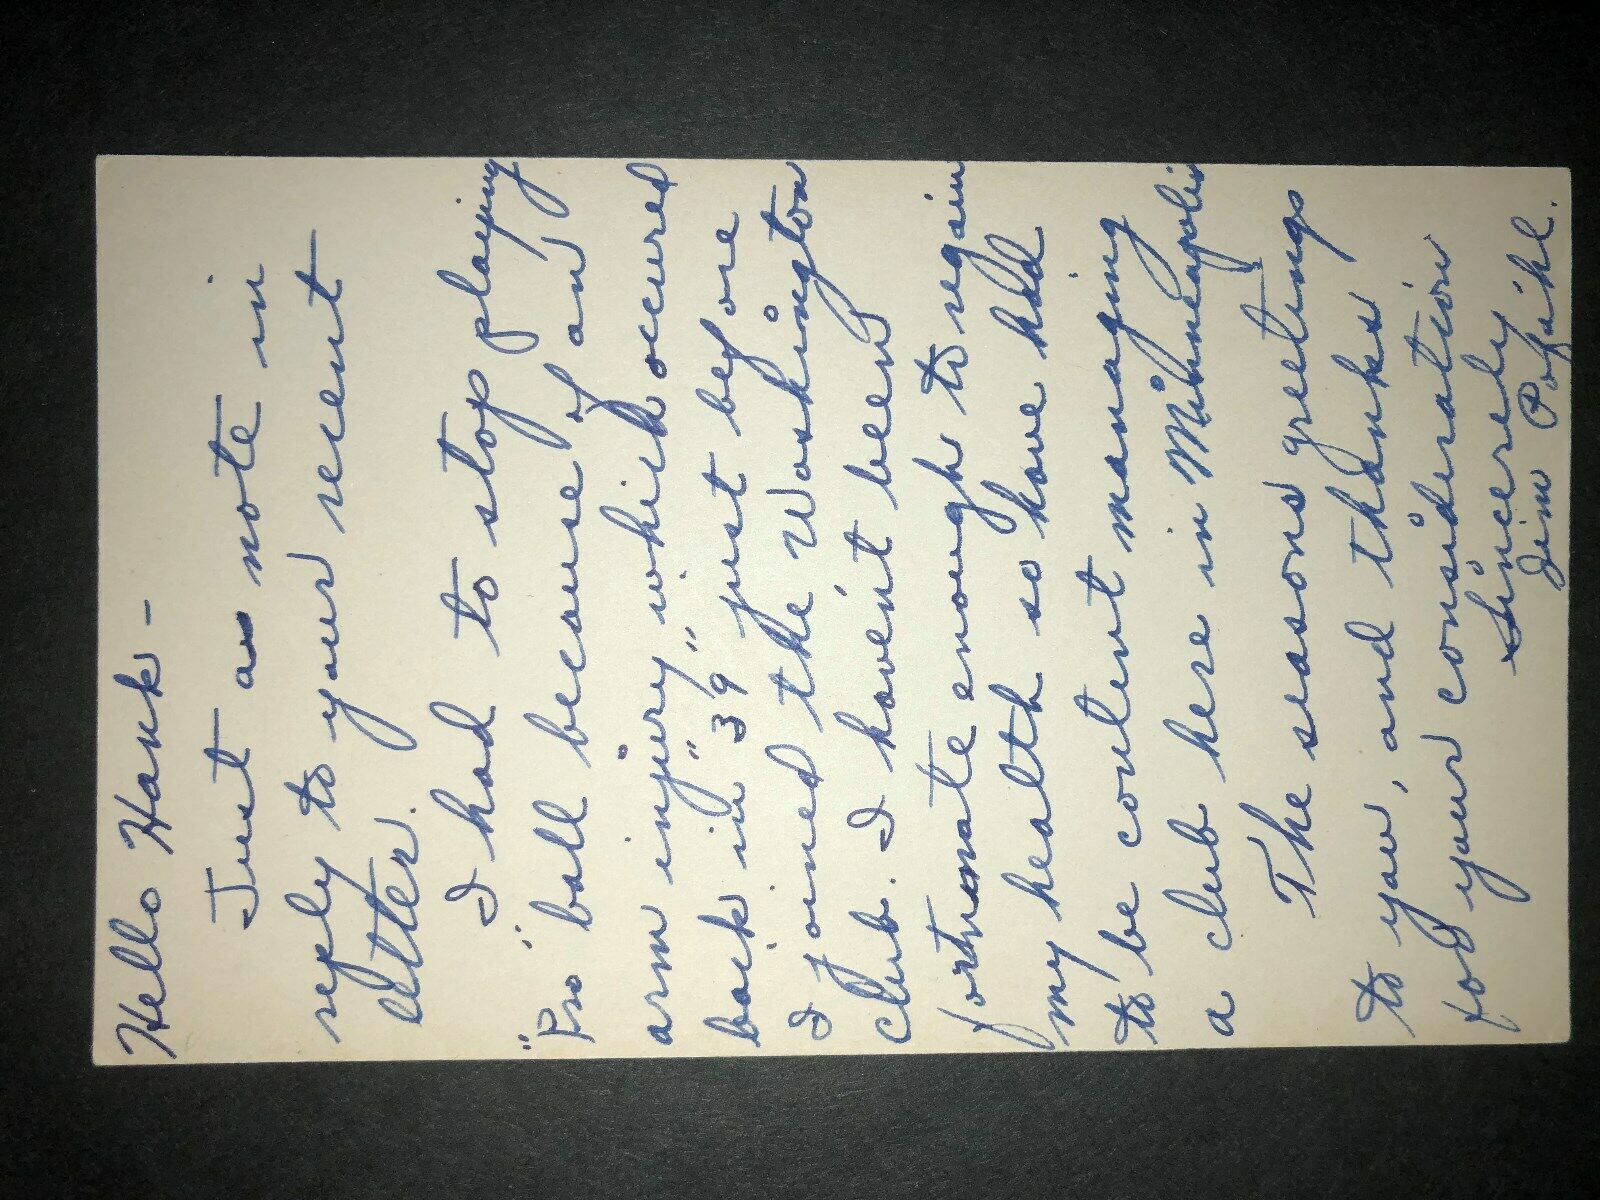 Hello Hank -
Just a note in
reply to your recent
letter.
I had to stop playing
"Pro" ball because of an
arm injury which occured
back in "39" just before
I joined the Washington
club. I haven't been
fortunate enough to regain
my health so have had
to be content managing
a club here in Minneapolis
The seasons greetings
to you, and thanks
for your consideration
Sincerely
Jim Pofahl.